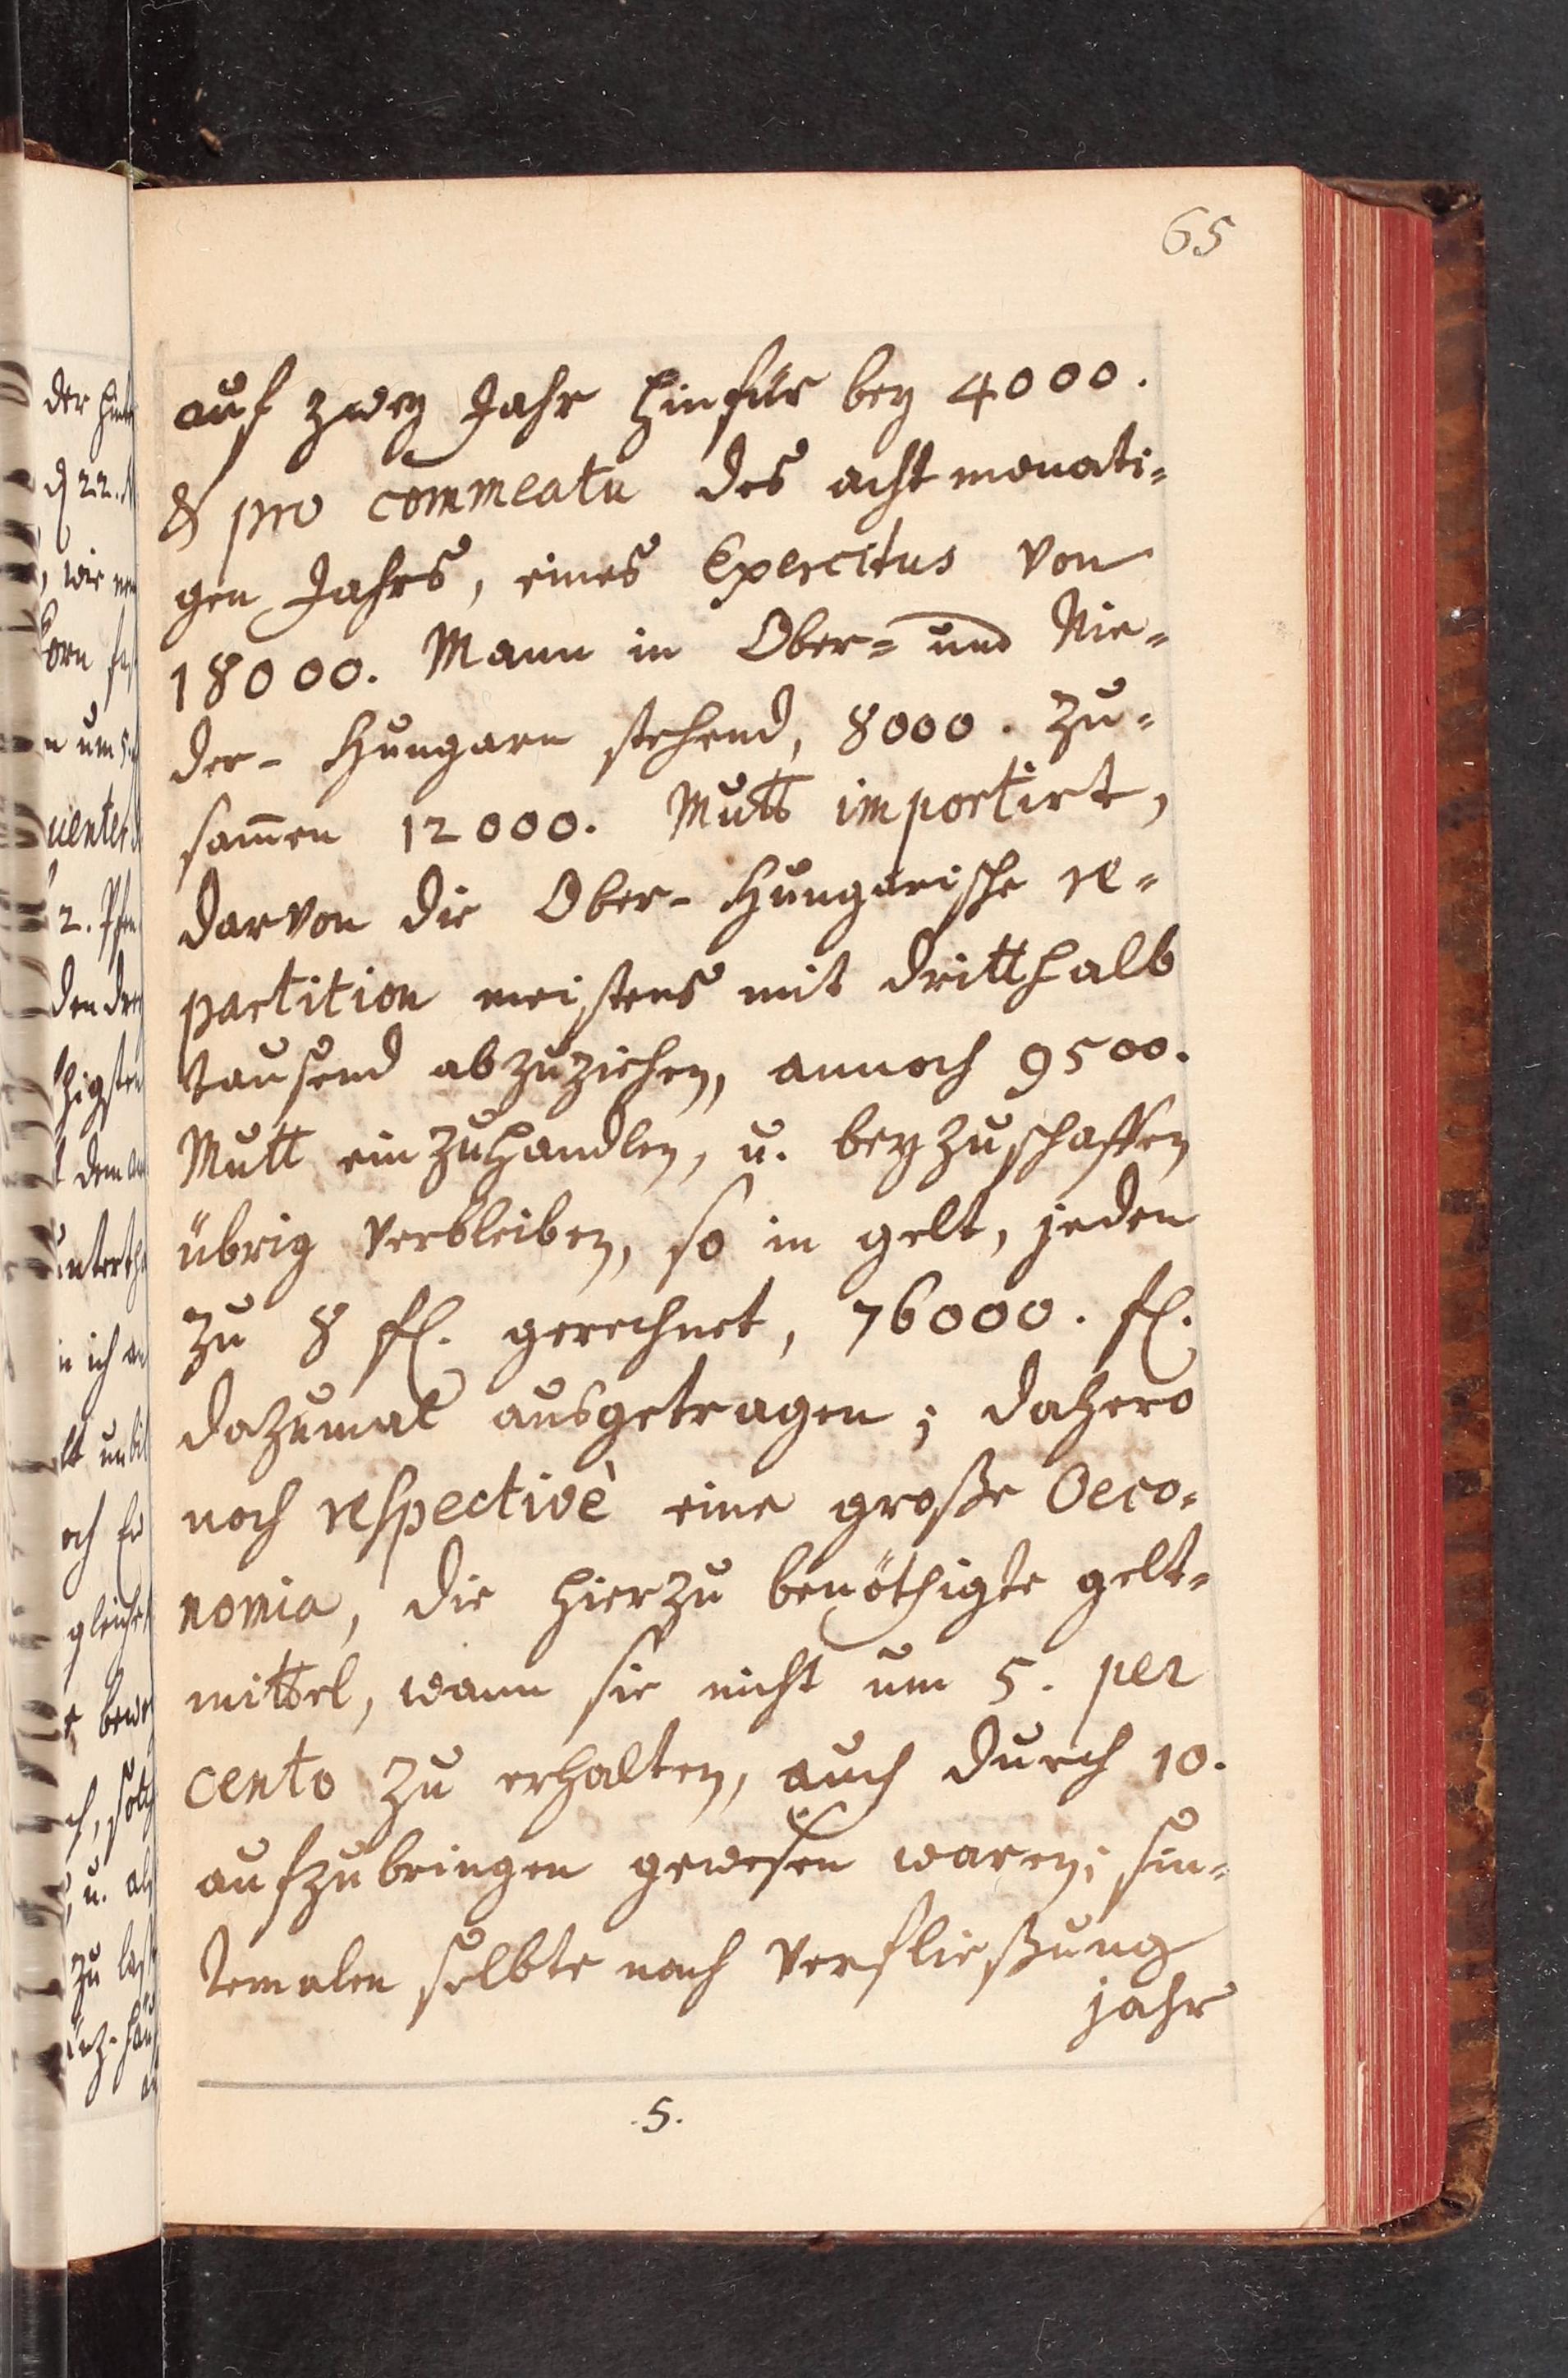 65
auf zwey Jahr hinfür bey 4000.
& pro com̄meatu des acht monati=
gen Jahrs, eines Exercitus von
18000. Mann in Ober= und Nie=
der- Hungarn stehend, 8000. zu=
sam̄en 12000. Mutt importirt,
darvon die Ober- Hungarische re=
partition meistens mit dritthalb
tausend abzuziehen, annoch 9500.
Mutt einzuhandlen, u. beyzuschaffen
übrig verbleiben, so in gelt, jeden
zu 8 fl. gerechnet, 76000. fl.
dazumal ausgetragen; dahero
noch respectivè eine große Oeco=
nomia, die hierzu benöthigte gelt=
mittel, wann sie nicht um 5. per
cento zu erhalten, auch durch 10.
aufzubringen gewesen waren; sin=
temalen selbte nach verfließung
jahr
.5.